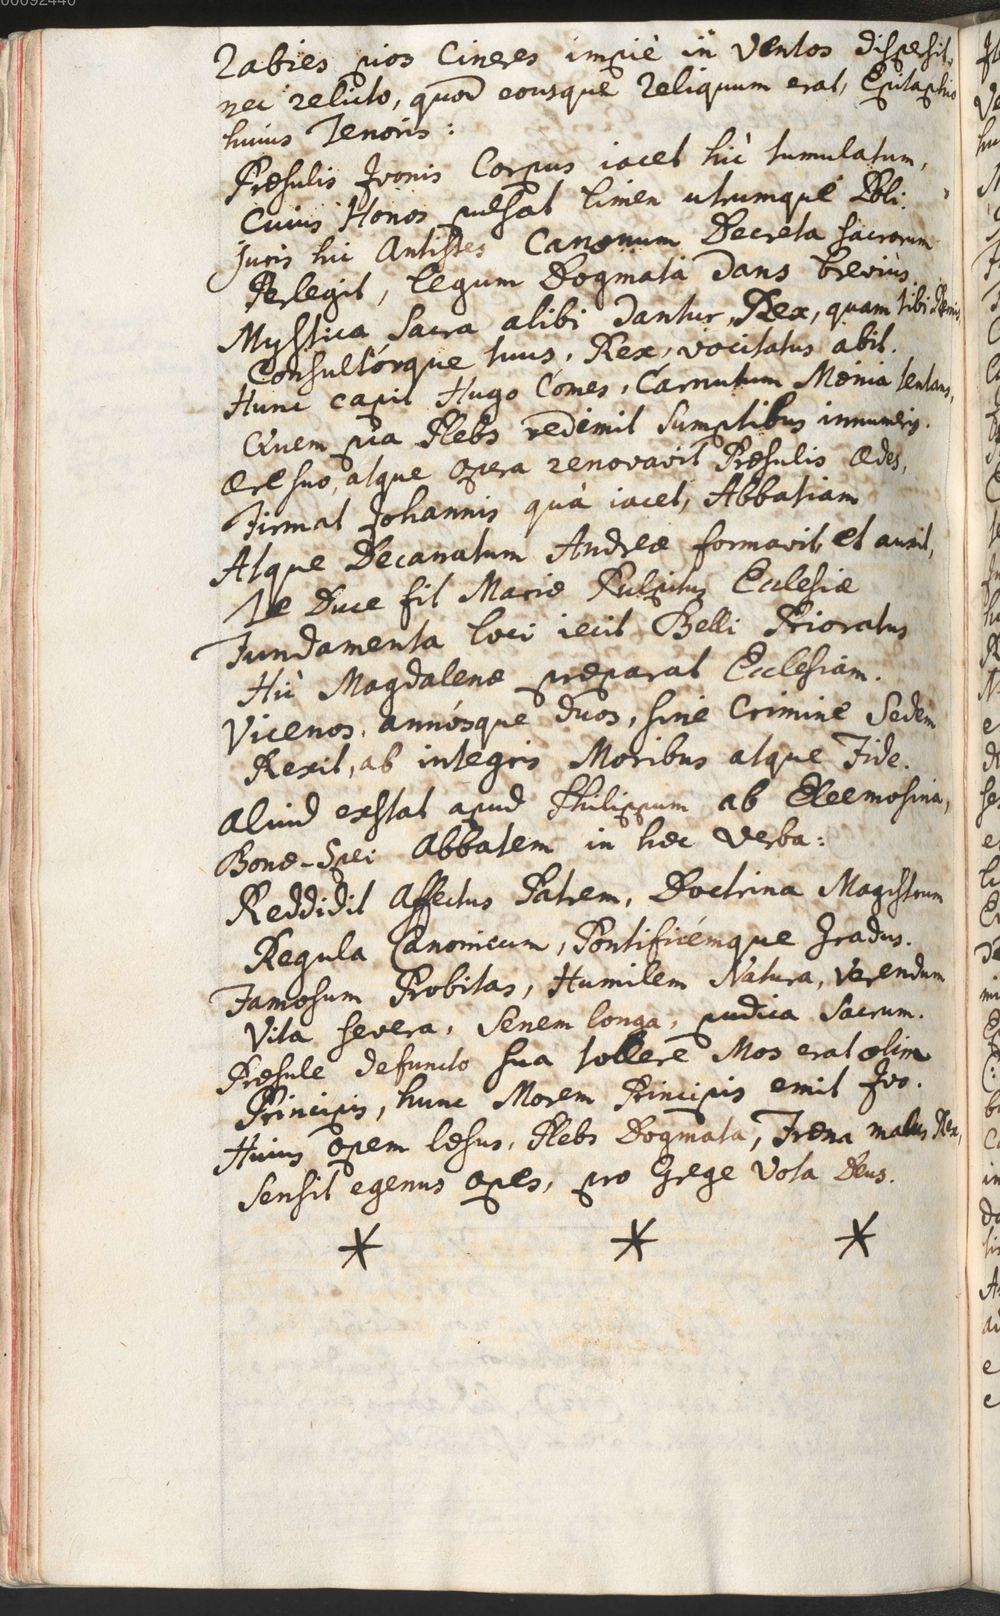 00092440
Rabies pios Cineres impiè in Ventos dispersit,
nec relicto, quod eousque reliquum erat, Epitaphio
huius Tenoris:
Præsulis Jvonis Corpus iacet hìc tumulatum,
Cuius Honos pulsat limen utrumque Poli.
Juris hic Antistes Canonum Decreta sacrorum
Perlegit, legum Dogmata dans brevius.
Mystica Sacra alibi dantur, Rex, quam tibi
Consultórque tuus, Rex, vocitatus abit.
Hunc capit Hugo Comes, Carnutum Mœnia tentans,
Quem pia Plebs redimit Sumptibus innumeris.
Ære suo, atque opera renovavit Præsulis Ædes,
Firmat Johannis quà iacet, Abbatiam
Atque Decanatum Andreæ formavit, et auxit,
Te Duce fit Mariæ Pulpitus Ecclesiæ
Fundamenta loci iecit Belli Prioratus
Hìc Magdalenæ præparat Ecclesiam.
Vicenos, annósque duos, sine Crimine Sedem
Rexit, ab integris Moribus atque Fide.
Aliud exstat apud Philippum ab Eleemosina,
Bonæ-Spei Abbatem in hæc Verba:
Reddidit Affectus Patrem, Doctrina Magistrum
Regula Canonicum, Pontificémque Gradus.
Famosum Probitas, Humilem Natura, Verendum
Vita severa, Senem longa, pudica Sacrum.
Præsule defuncto sua tollere Mos erat olim
Principis, hunc Morem Principis emit Jvo.
Huius opem læsus, Plebs Dogmata, Fræna malus Rex,
Sensit egenus opes, pro Grege Vota Deus.
* * *